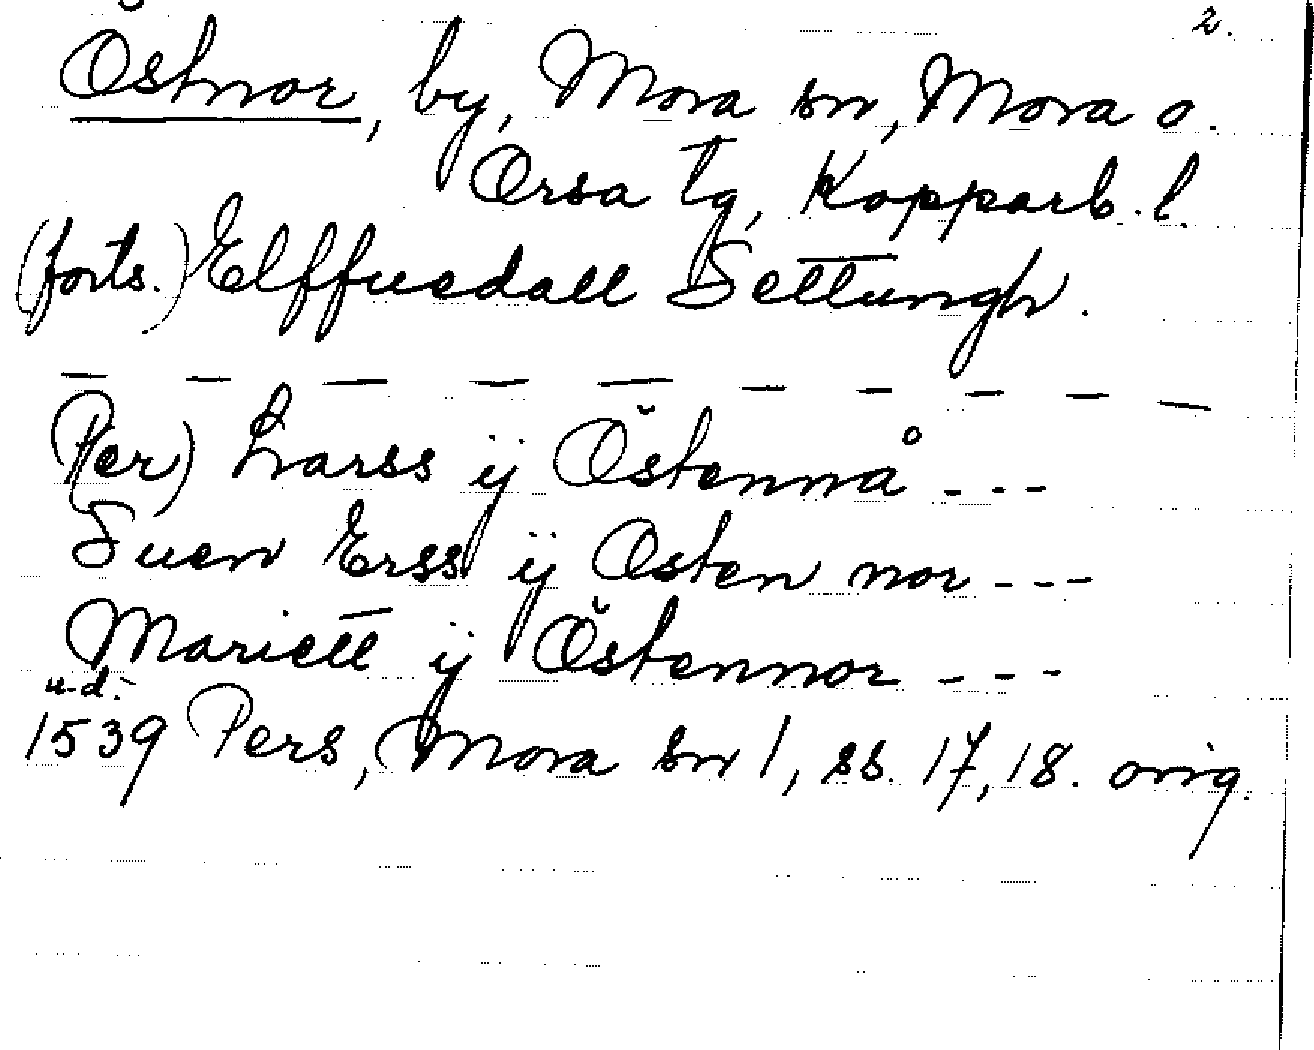 2.
Östnor, by, Mora sn, Mora o.
Orsa tg, Kopparb. l.
(forts.) Elffuedall Settungh.
— — — — — — — — — —
(Per) Larss ÿ Östennå ---
Suen Erss ÿ Osten nor ---
Mariett ÿ Östennor ---
u.d.
1539 Pers, Mora sn 1, ss. 17, 18. orig.